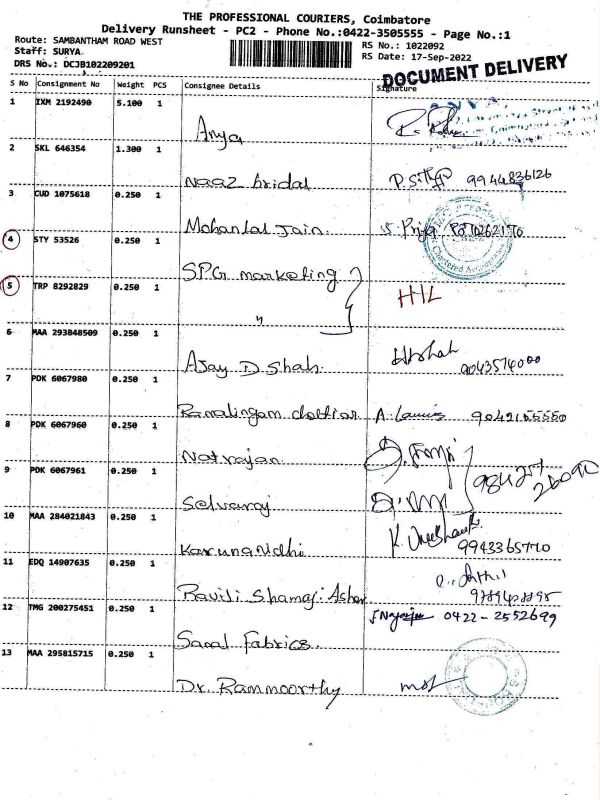 THE PROFESSIONAL COURIERS, Coimbatore
Delivery Runsheet - PC2 - Phone No.:0422-3505555 - Page No.:1
Route: SAMBANTHAM ROAD WEST
RS No.: 1022092
Staff: SURYA.
RS Date: 17-Sep-2022
DRS No.: DCJB102209201
DOCUMENT DELIVERY
S No Consignment No Weight PCS Consignee Details Signature
1 IXM 2192490 5.100 1
Arya
2 SKL 646354 1.300 1
Naaz bridal 9944836126
3 CUD 1075618 0.250 1
Mohanlal Jain. S. Priya
4 STY 53526 0.250 1
SPG marketing
Chartered Accountants
5 TRP 8292829 0.250 1
" HIL
6 MAA 293848509 0.250 1
Ajay D Shah. 9043574000
7 PDK 6067980 0.250 1
Ramalingam chettiar 9042155550
8 PDK 6067960 0.250 1
Natrajan
9 PDK 6067961 0.250 1
Selvaraj
10 MAA 284021843 0.250 1
Karunanidhi 9943365770
11 EDQ 14907635 0.250 1
12 TMG 200275451 0.250 1
0422 - 2552699
Saral Fabrics.
13 MAA 295815715 0.250 1
Dr. Rammoorthy